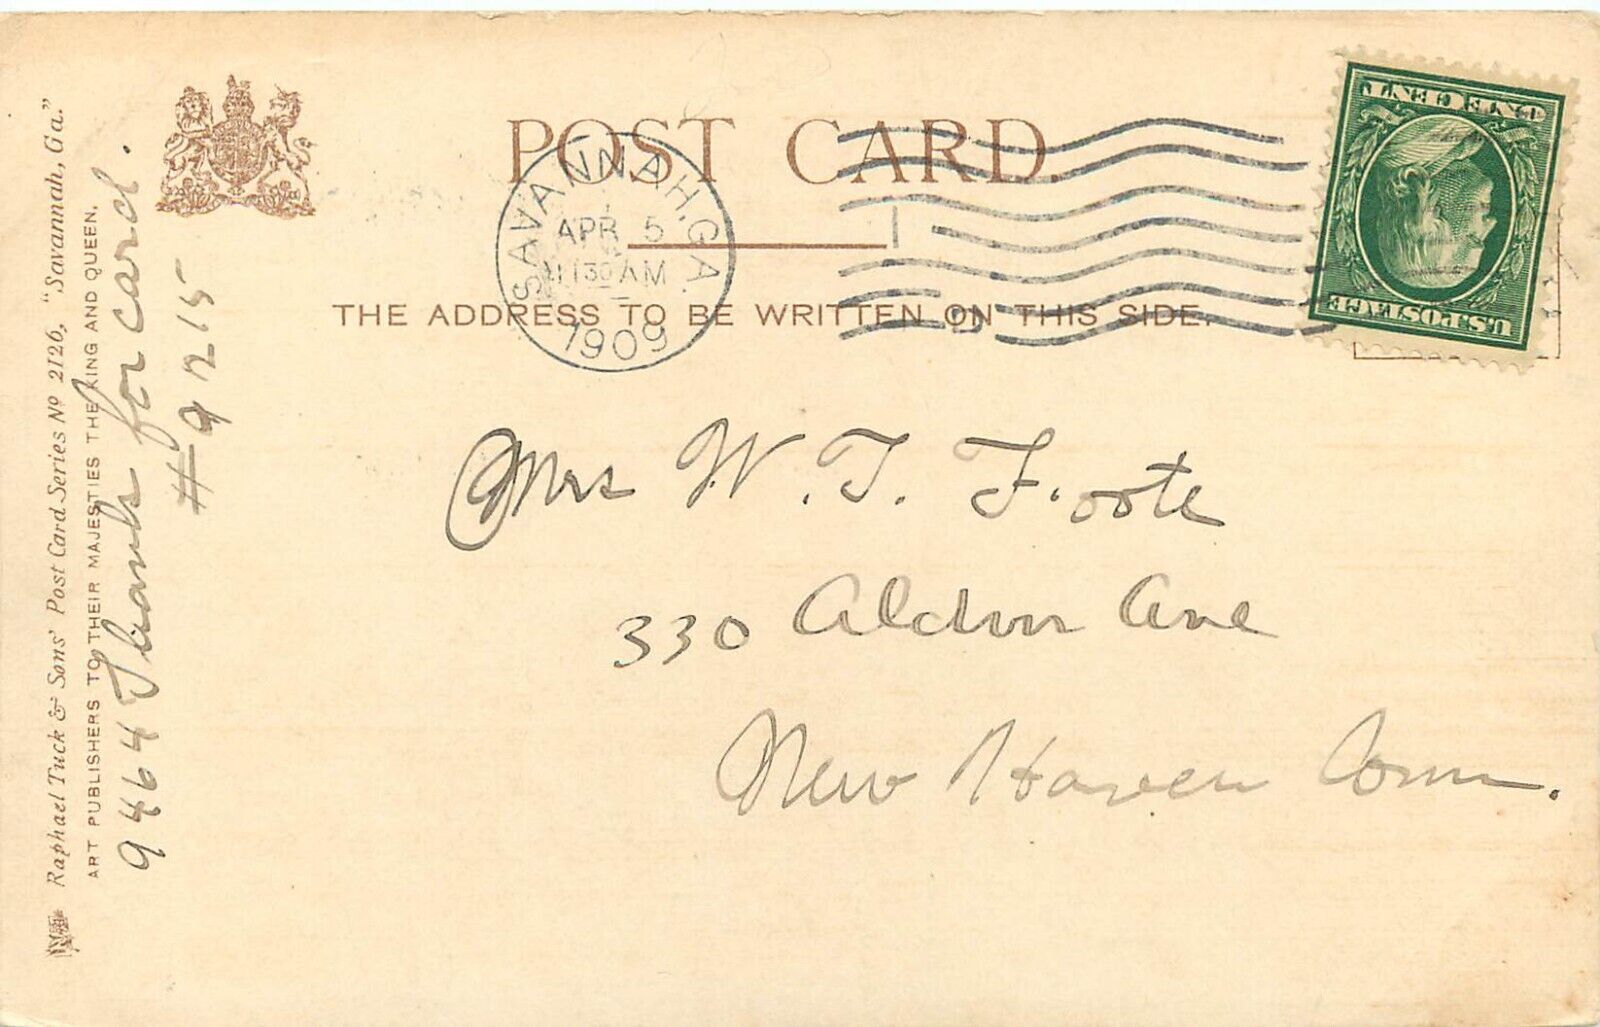 POST CARD.
SAVANNAH, GA.
APR 5
11 30 AM
1909
THE ADDRESS TO BE WRITTEN ON THIS SIDE.
ONE CENT
U.S. POSTAGE
Mrs W. T. Foote
330 Ave
New Haven Conn.
Raphael Tuck & Sons' Post Card Series No 2126, "Savannah, Ga."
ART PUBLISHERS TO THEIR MAJESTIES THE KING AND QUEEN.
9464 Thanks for card.
#9215